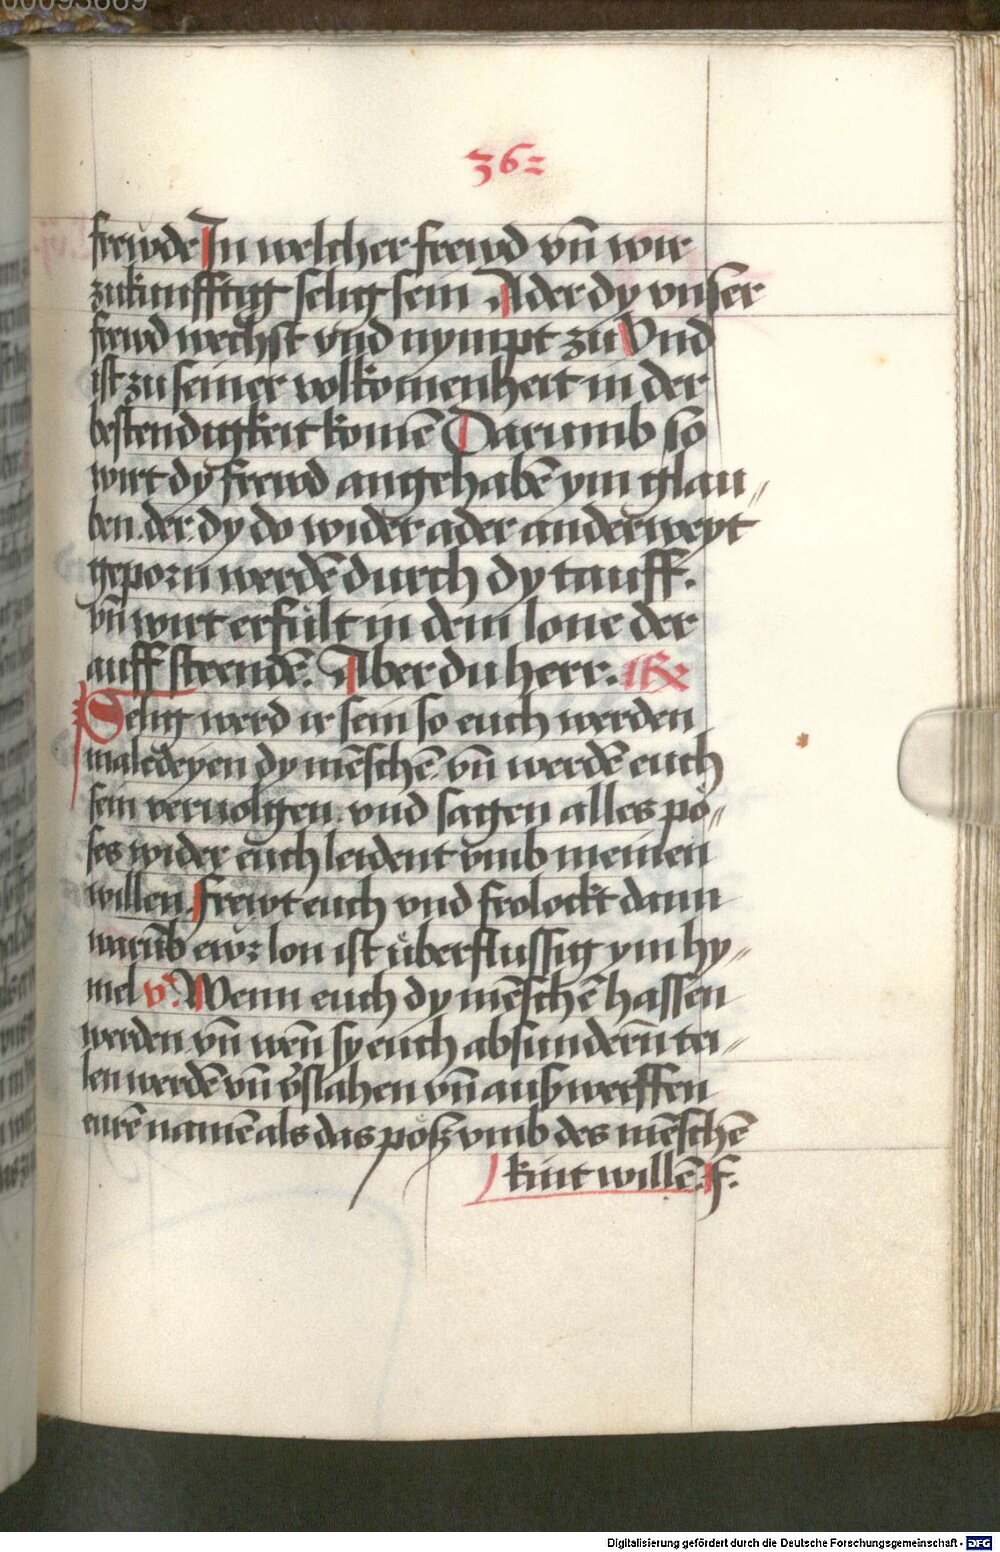 00093669
36=
frewde In welcher frewd vn̄ wir
zukunfftig selig sein Ader dy vnser
frewd wechst vnd nympt zu Vnd
ist zu seiner volkomenheit in der
bestendigkeit komē Darumb so
wirt dy frewd angehabē ym glau〃
ben. der dy do wider ader anderweyt
geporn werdē durch dy tauff.
vn̄ wirt erfült in dem lone der
auff steendē. Aber du herr.
Selig werd ir sein so euch werden
maledeyen dy mēschē vn̄ werdē euch
sein veruolgen. vnd sagen alles pö〃
ses wider euch leident vmb meinen
willen. frewt euch vnd frolockt dann
warūb ewr lon ist überflussig ym hy〃
mel v̾. Wenn euch dy mēschē hassen
werden vn̄ wen̄ sy euch absundern̄ tei〃
len werdē vn̄ v̾slahen vn̄ auß werffen
eurē namē als das pöß vmb des mēschē
kint willē. f.
Digitalisierung gefördert durch die Deutsche Forschungsgemeinschaft - DFG